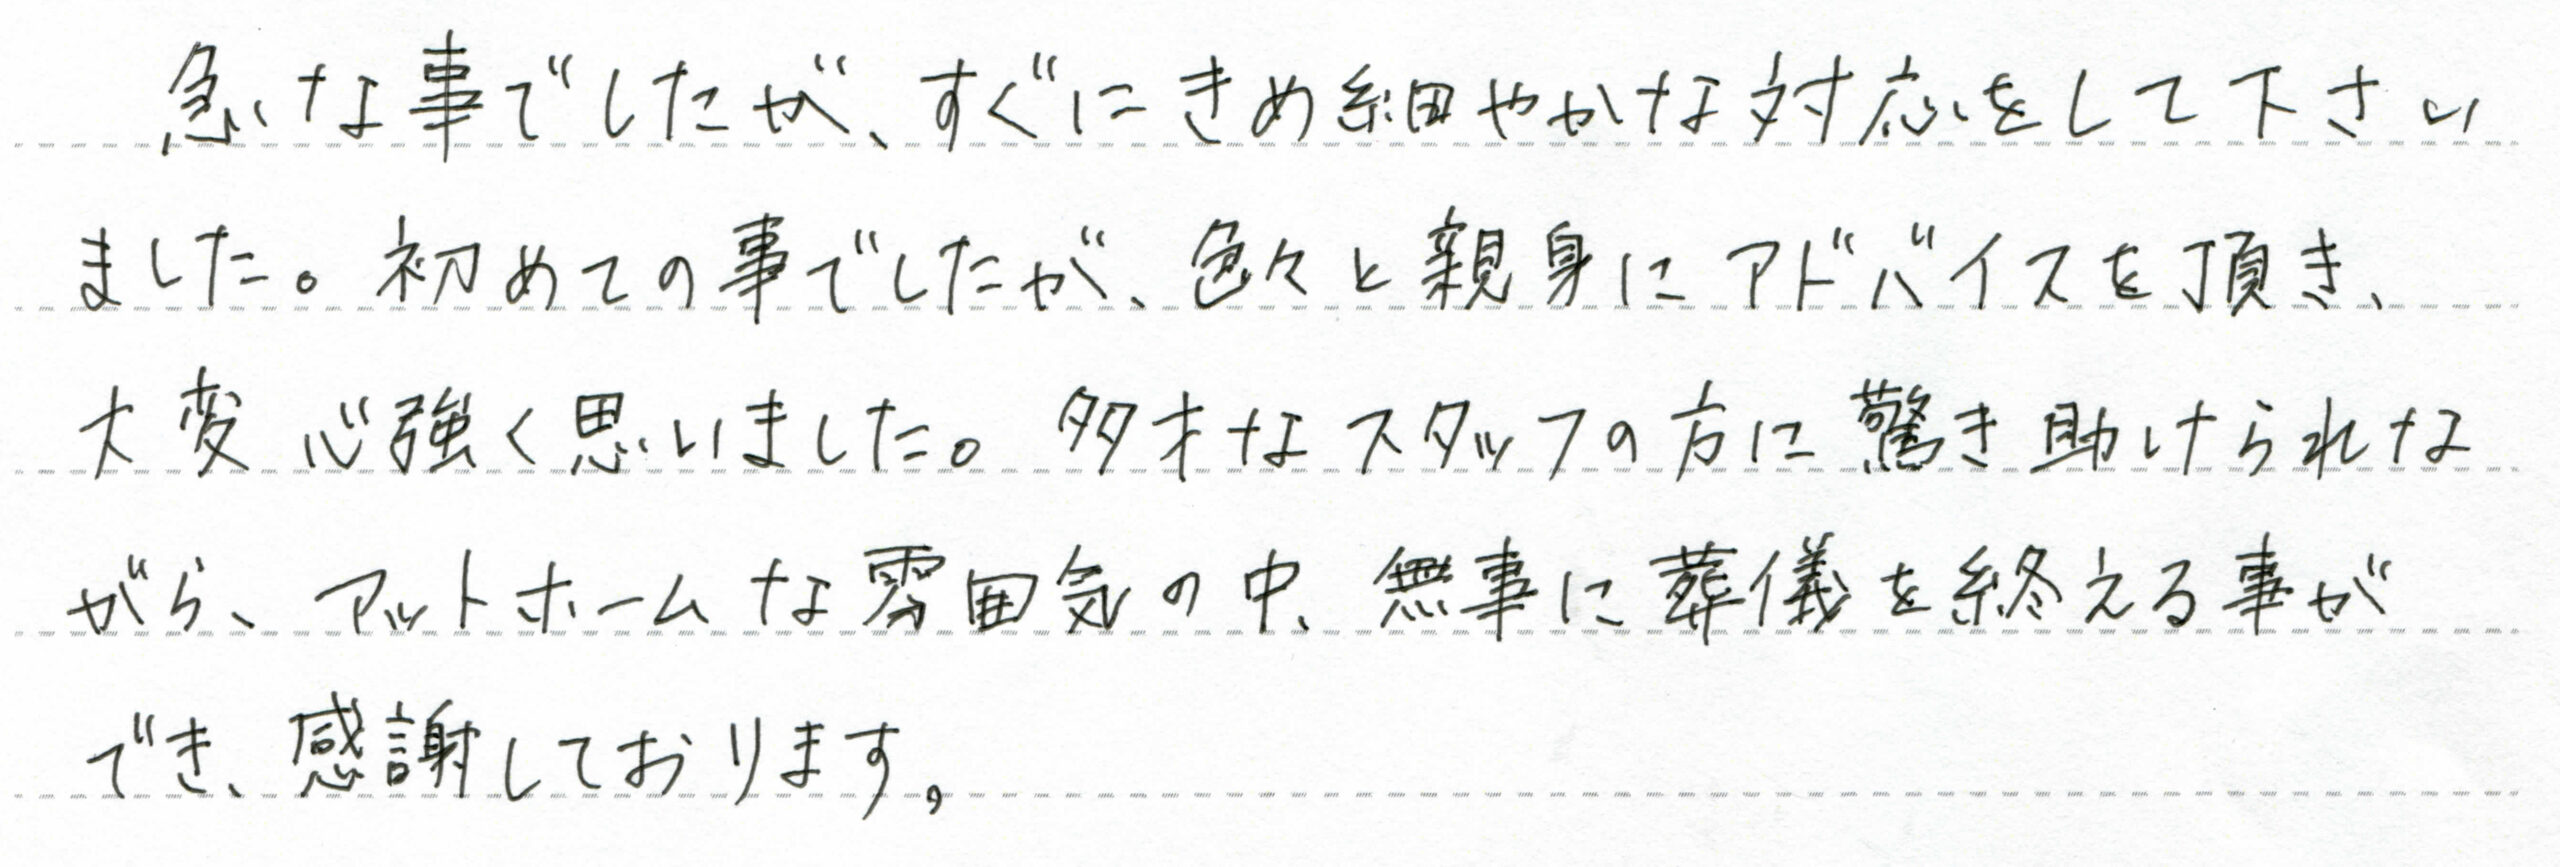 急な事でしたが、すぐにきめ細やかな対応をして下さい
ました。初めての事でしたが、色々と親身にアドバイスを頂き、
大変心強く思いました。多才なスタッフの方に驚き助けられな
がら、アットホームな雰囲気の中、無事に葬儀を終える事が
でき、感謝しております。